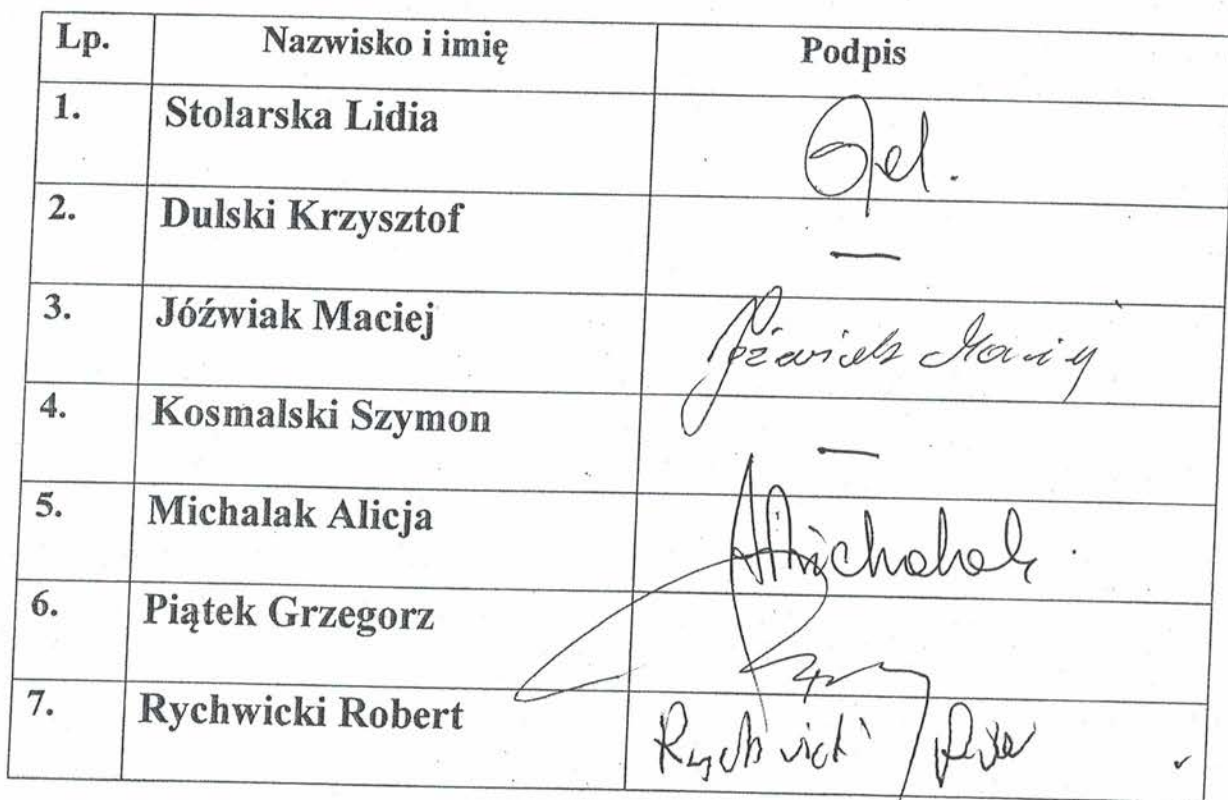 Lp. Nazwisko i imię Podpis
1. Stolarska Lidia
2. Dulski Krzysztof —
3. Jóźwiak Maciej Jóźwiak Maciej
4. Kosmalski Szymon —
5. Michalak Alicja AMichalak
6. Piątek Grzegorz
7. Rychwicki Robert Rychwicki